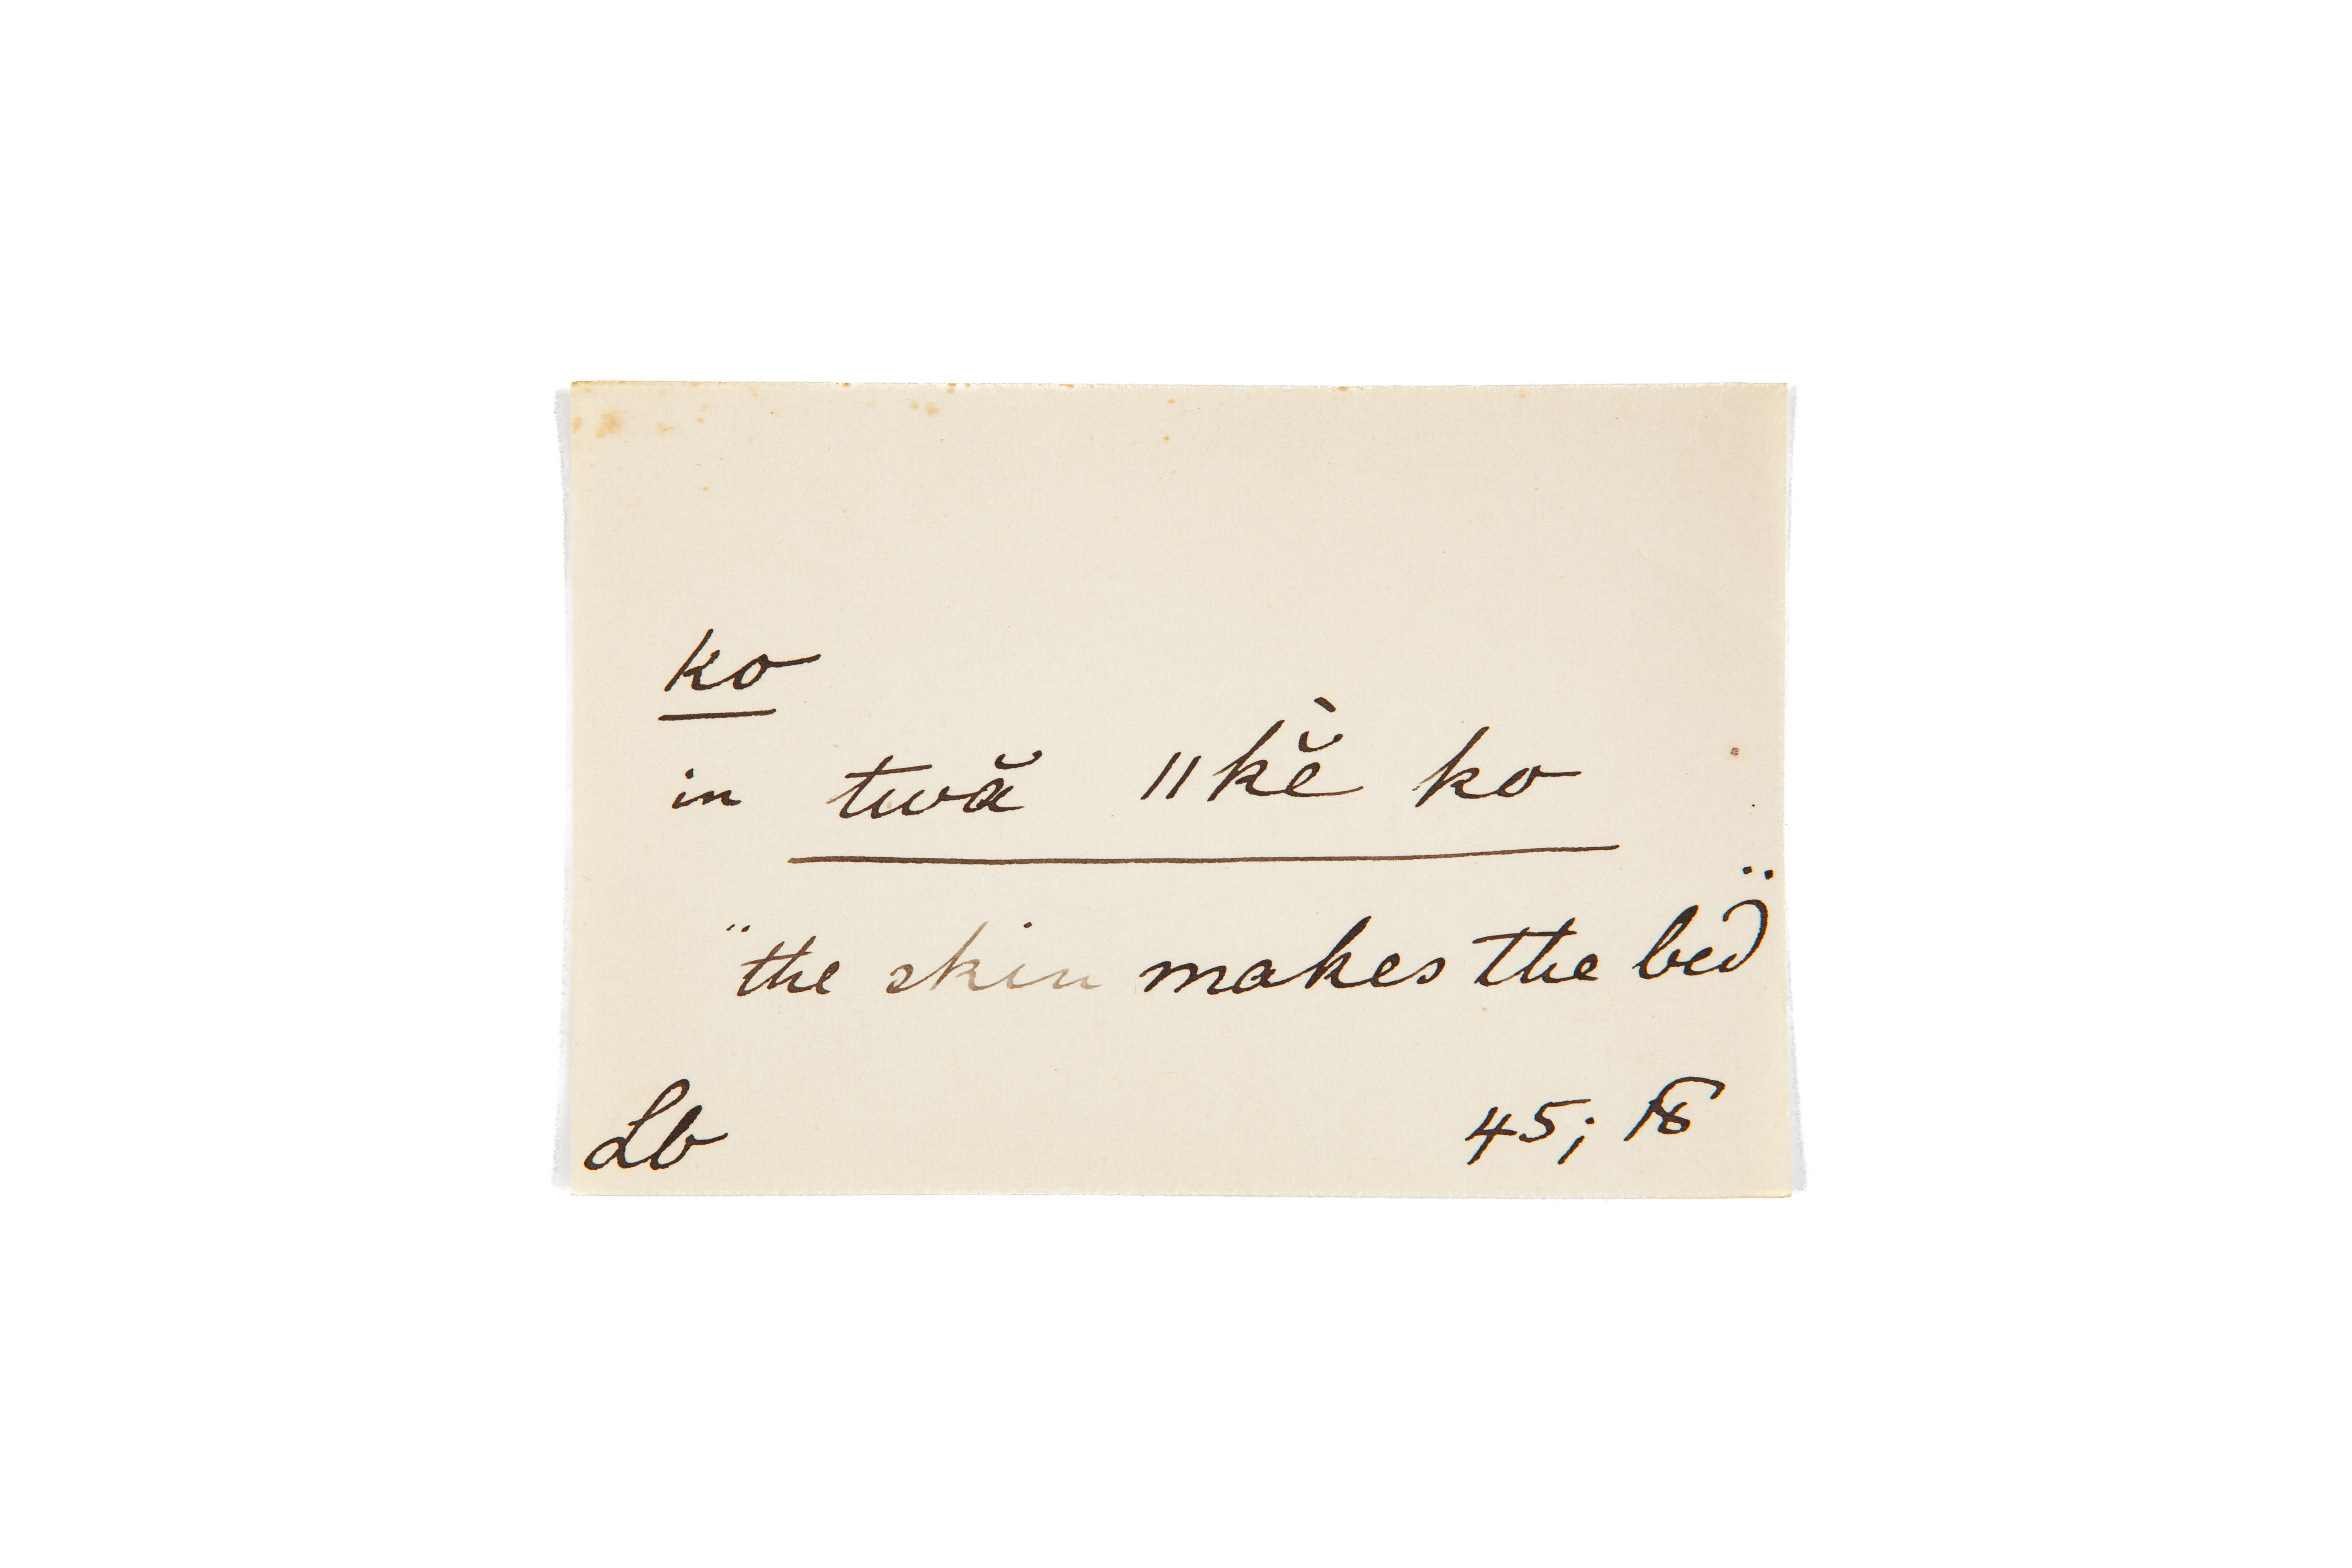 ko
in twă ǁkĕ̀ ko
"the skin makes the bed"
Lb 45; 18